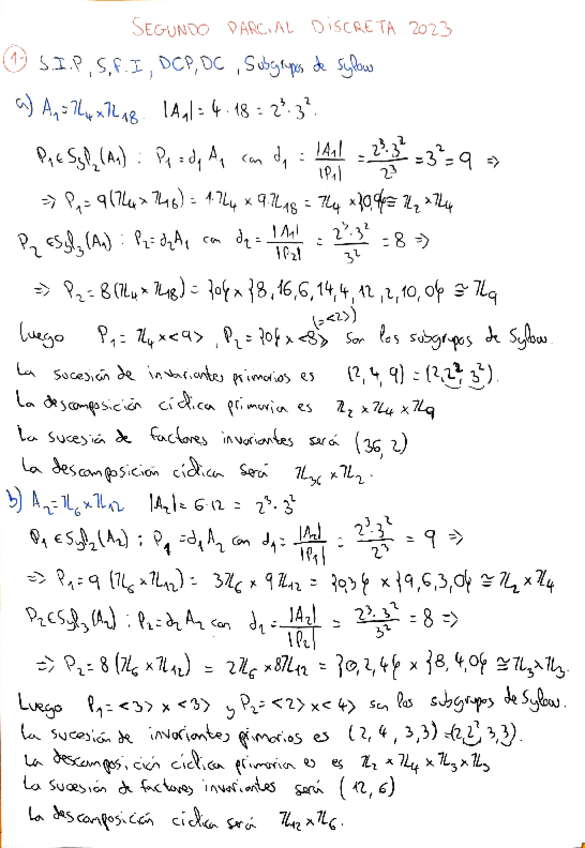 SEGUNDO PARCIAL DISCRETA 2023
1- S.I.P, S.F.I, DCP, DC, Subgrupos de Sylow
a) A₁=ℤ₄×ℤ₁₈. |A₁|= 4·18 = 2³·3².
P₁∈Syl₂(A₁) : P₁=d₁A₁ con d₁ = |A₁|/|P₁| = 2³·3²/2³ = 3² = 9 ⇒
⇒ P₁= 9(ℤ₄×ℤ₁₈) = 1·ℤ₄ × 9·ℤ₁₈ = ℤ₄ × {0,9} ≅ ℤ₂×ℤ₄
P₂∈Syl₃(A₁) : P₂=d₂A₁ con d₂ = |A₁|/|P₂| = 2³·3²/3² = 8 ⇒
⇒ P₂ = 8(ℤ₄×ℤ₁₈) = {0} × {8,16,6,14,4,12,2,10,0} ≅ ℤ₉
(=<2>)
Luego P₁= ℤ₄×<9>, P₂= {0}×<8> son los subgrupos de Sylow.
La sucesión de invariantes primarios es (2,4,9) = (2,2²,3²).
La descomposición cíclica primaria es ℤ₂×ℤ₄×ℤ₉
La sucesión de factores invariantes será (36,2)
La descomposición cíclica será ℤ₃₆×ℤ₂.
b) A₂=ℤ₆×ℤ₁₂ |A₂|= 6·12 = 2³·3²
P₁∈Syl₂(A₂) : P₁=d₁A₂ con d₁= |A₂|/|P₁| = 2³·3²/2³ = 9 ⇒
⇒ P₁= 9(ℤ₆×ℤ₁₂) = 3ℤ₆ × 9ℤ₁₂ = {0,3} × {9,6,3,0} ≅ ℤ₂×ℤ₄
P₂∈Syl₃(A₂) : P₂=d₂A₂ con d₂= |A₂|/|P₂| = 2³·3²/3² = 8 ⇒
⇒ P₂= 8(ℤ₆×ℤ₁₂) = 2ℤ₆ × 8ℤ₁₂ = {0,2,4} × {8,4,0} ≅ ℤ₃×ℤ₃.
Luego P₁=<3>×<3> y P₂=<2>×<4> son los subgrupos de Sylow.
La sucesión de invariantes primarios es (2,4,3,3)=(2,2²,3,3).
La descomposición cíclica primaria es es ℤ₂×ℤ₄×ℤ₃×ℤ₃
La sucesión de factores invariantes será (12,6)
La descomposición cíclica será ℤ₁₂×ℤ₆.